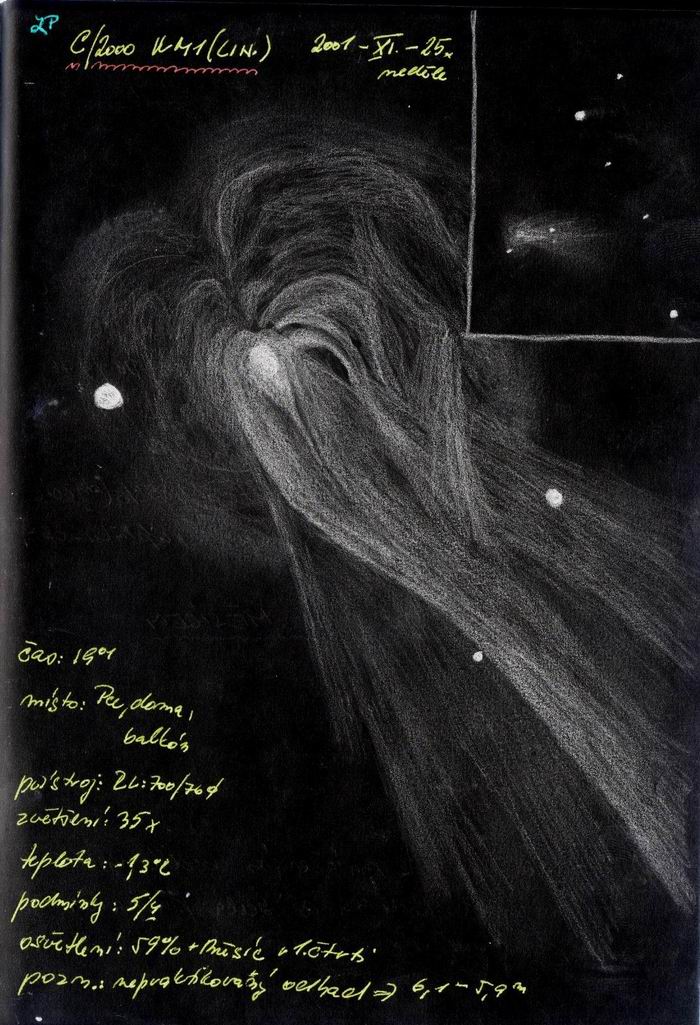 LP
C/2000 WM1 (LIN.)
2001-XI.-25.
neděle
čas: 19°¹
místo: Pec, doma,
balkón
přístroj: RL: 700/76φ
zvětšení: 35x
teplota: -1,3°C
podmínky: 5/4
osvětlení: 59% + měsíc v 1.čtvrti
pozn.: nepraktikovatný odhad ⇒ 6,1 - 5,9 m